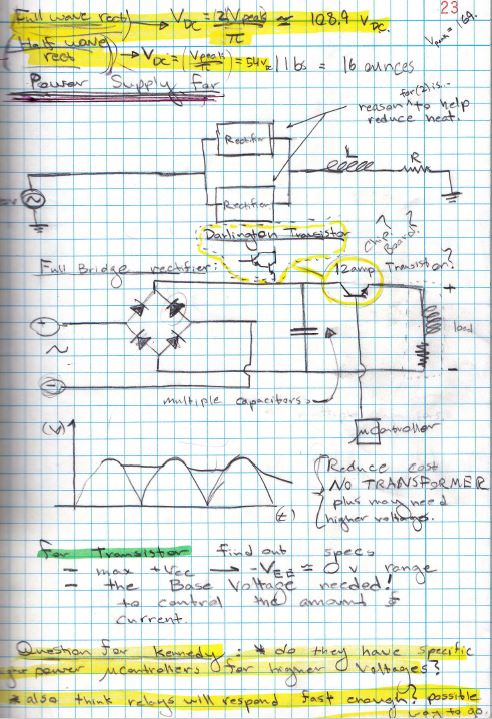 23
Full wave rect → VDC = 2(Vpeak)/π ≈ 108.9 VDC.
Vpeak = 169.
(Half wave) rect → VDC = (Vpeak/π) = 54V 1 lbs = 16 ounces
Power Supply for
for (2) is...
reason ^ to help
reduce heat.
Rectifier
L
R
Rectifier
Darlington Transistor
Chip? Board?
Full Bridge rectifier:
12 amp Transistor?
+
~
load
-
multiple capacitors
μController
(V)
(t)
Reduce cost
NO TRANSFORMER
plus may need
higher voltages.
For Transistor find out specs
- max +Vcc → -VEE ≈ 0 v range
- the Base Voltage needed!
to control the amount of
current.
Question for Kennedy: * do they have specific
power μControllers for higher Voltages?
* also think relays will respond fast enough? possible
way to go.